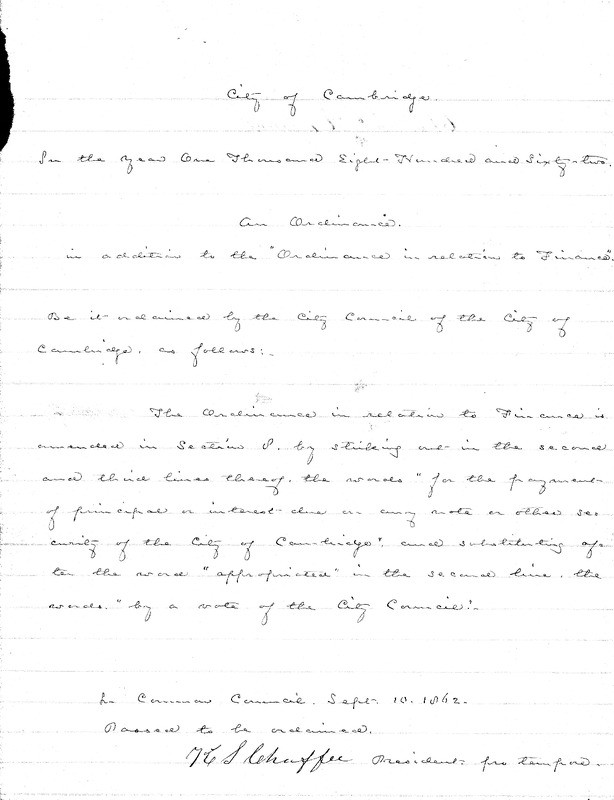 City of Cambridge.
In the year One Thousand Eight Hundred and Sixty-two.
An Ordinance.
in addition to the "Ordinance in relation to Finance".
Be it ordained by the City Council of the City of
Cambridge, as follows:-
The Ordinance in relation to Finance is
amended in Section 8, by striking out in the second
and third lines thereof, the words "for the payment
of principal or interest due on any note or other se-
curity of the City of Cambridge", and substituting af-
ter the word "appropriated" in the second line, the
words, "by a vote of the City Council".
In Common Council, Sept. 10. 1862.
Passed to be ordained.
Chaffee President pro tempore.